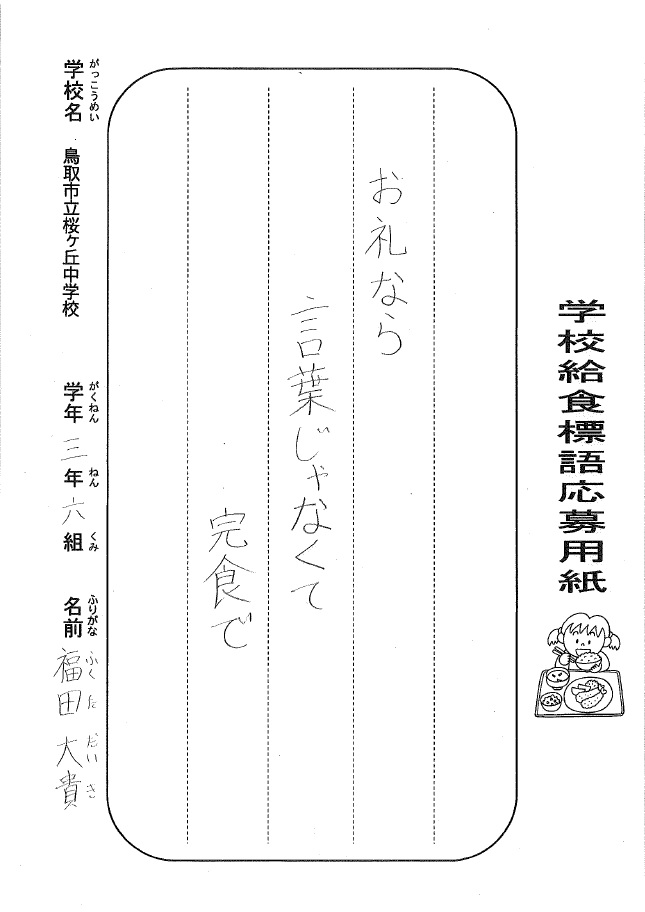 学校給食標語応募用紙
お礼なら
言葉じゃなくて
完食で
がっこうめい
学校名 鳥取市立桜ヶ丘中学校
がくねん ねん くみ
学年 三年 六組
ふりがな ふくた だいき
名前 福田 大貴